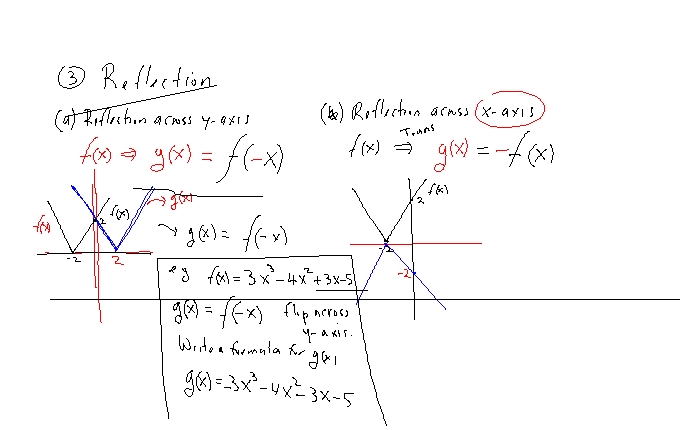 ③ Reflection
(a) Reflection across y-axis
f(x) ⇒ g(x) = f(-x)
f(x)
f(x)
g(x)
2
-2
2
→ g(x) = f(-x)
e.g f(x) = 3x³ - 4x² + 3x - 5
g(x) = f(-x) flip across
y-axis.
Write a formula for g(x)
g(x) = -3x³ - 4x² - 3x - 5
(b) Reflection across x-axis
Trans
f(x) ⇒ g(x) = -f(x)
f(x)
2
-2
-2